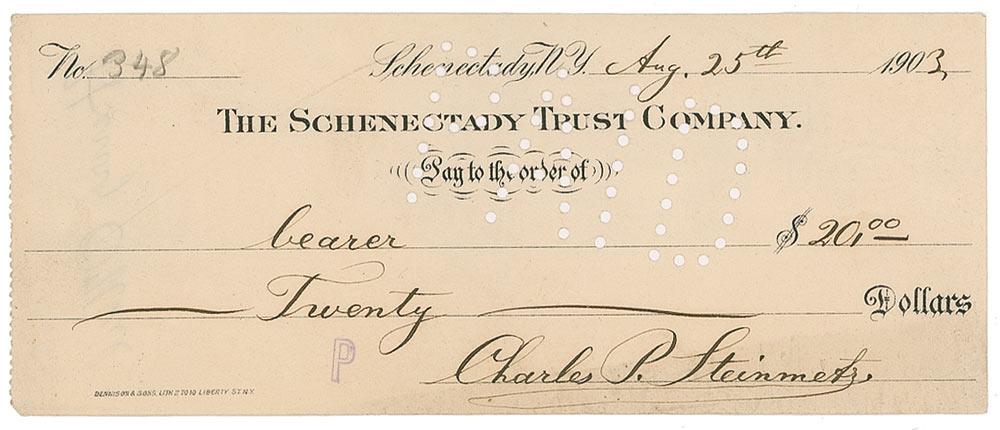 No. 348 Schenectady, N.Y. Aug. 25th 1903
THE SCHENECTADY TRUST COMPANY.
Pay to the order of
bearer $ 20.00
Twenty Dollars
P
Charles P. Steinmetz
DENNISON & SONS, LITH 2 TO 10 LIBERTY ST. N.Y.